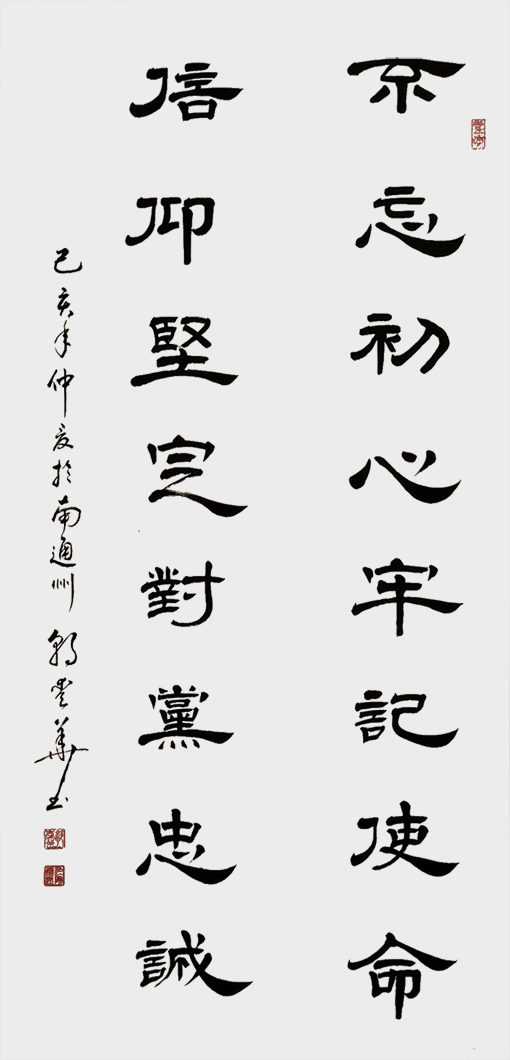 不忘初心牢記使命
信仰堅定對黨忠誠
己亥年仲夏於南通州 華书